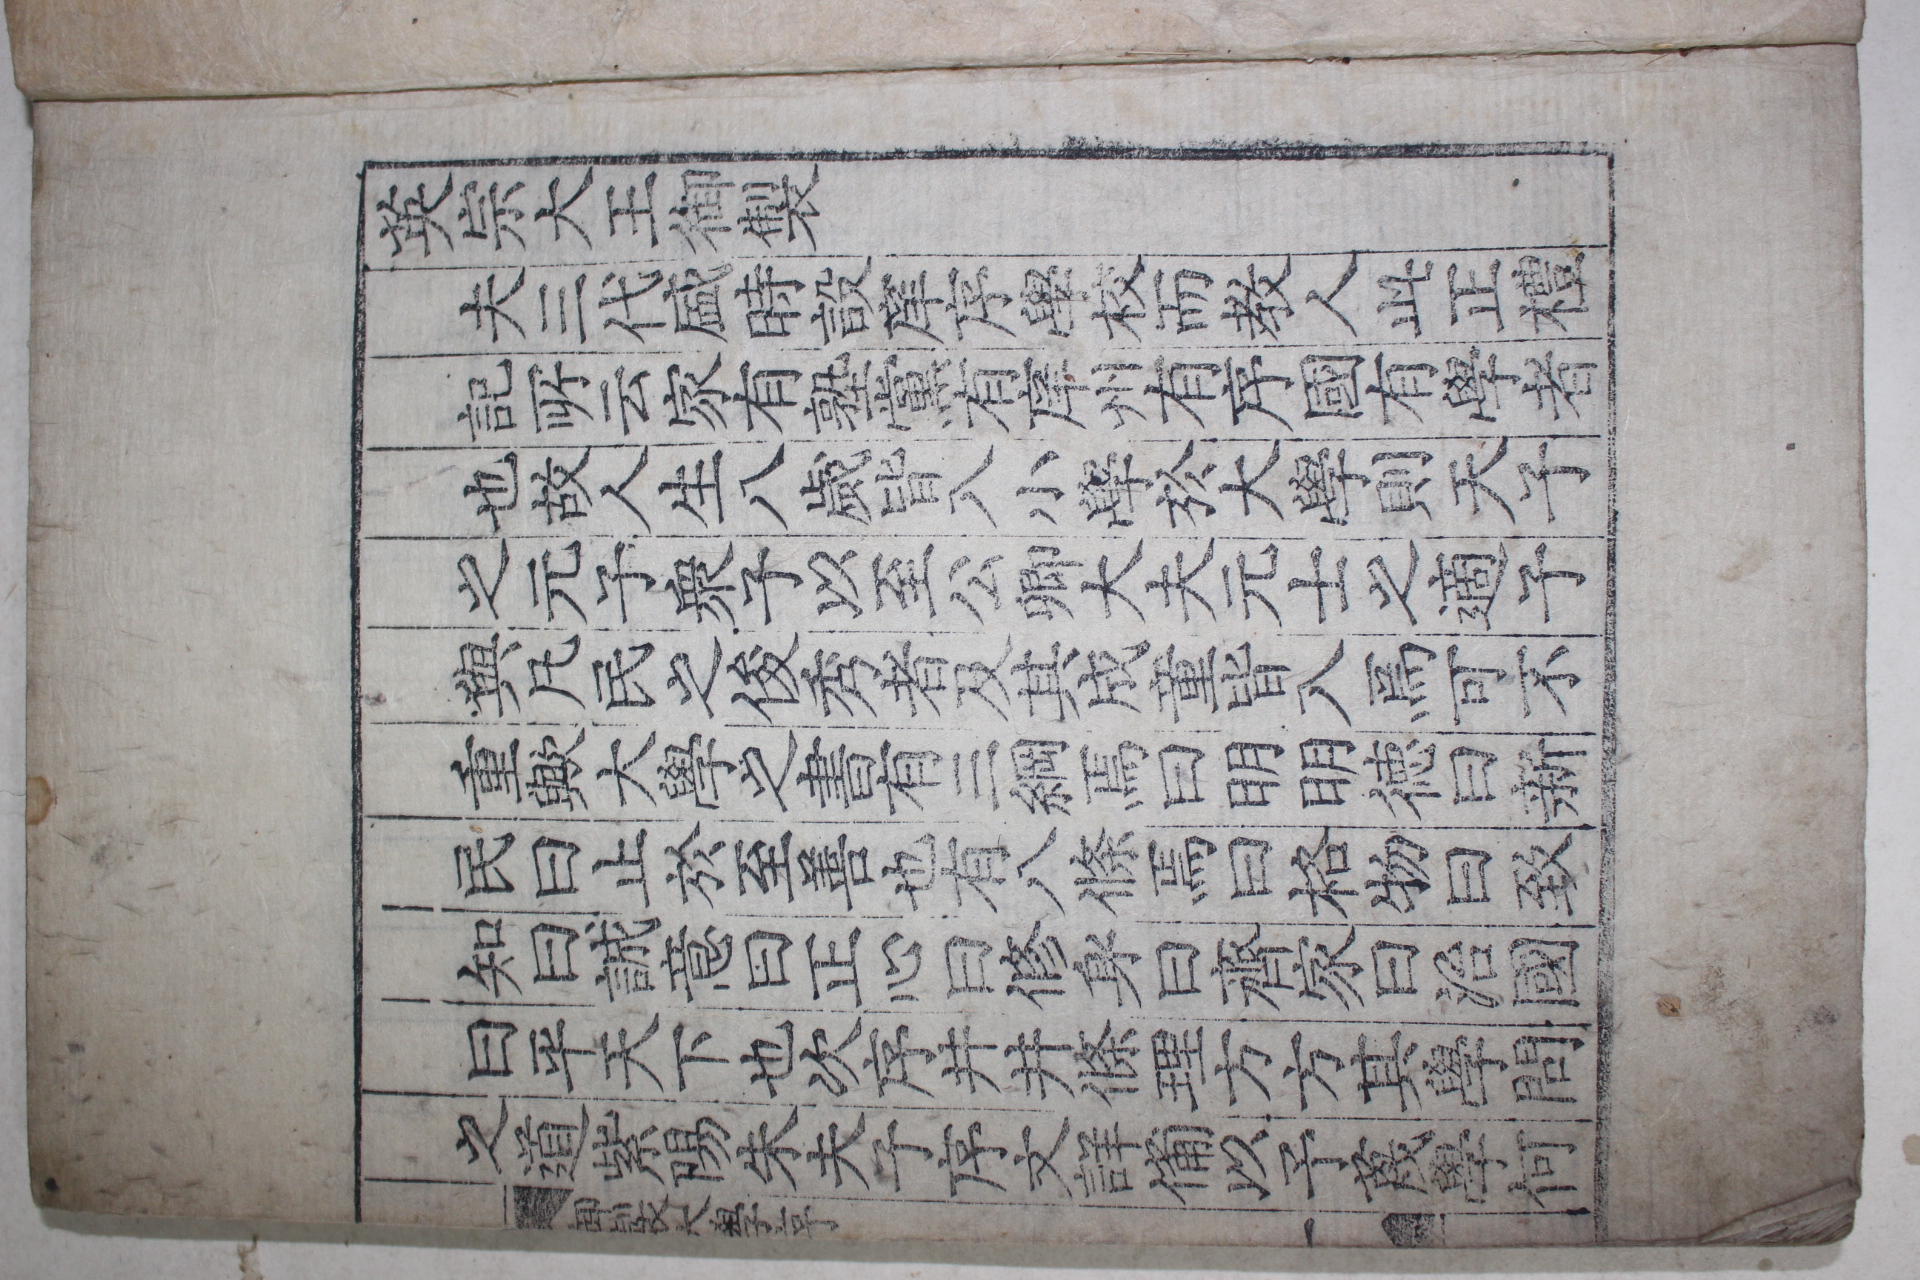 英宗大王御製
夫三代盛時設庠序學校而敎人此正禮
記所云家有塾黨有庠州有序國有學者
也故人生八歲皆入小學於大學則天子
之元子衆子以至公卿大夫元士之適子
與凡民之俊秀者及其成童皆入焉可不
重歟大學之書有三綱焉曰明明德曰新
民曰止於至善也有八條焉曰格物曰致
知曰誠意曰正心曰修身曰齊家曰治國
曰平天下也次序井井條理方方其學問
之道紫陽朱夫子序文詳備以予蔑學何
御製大學序 一